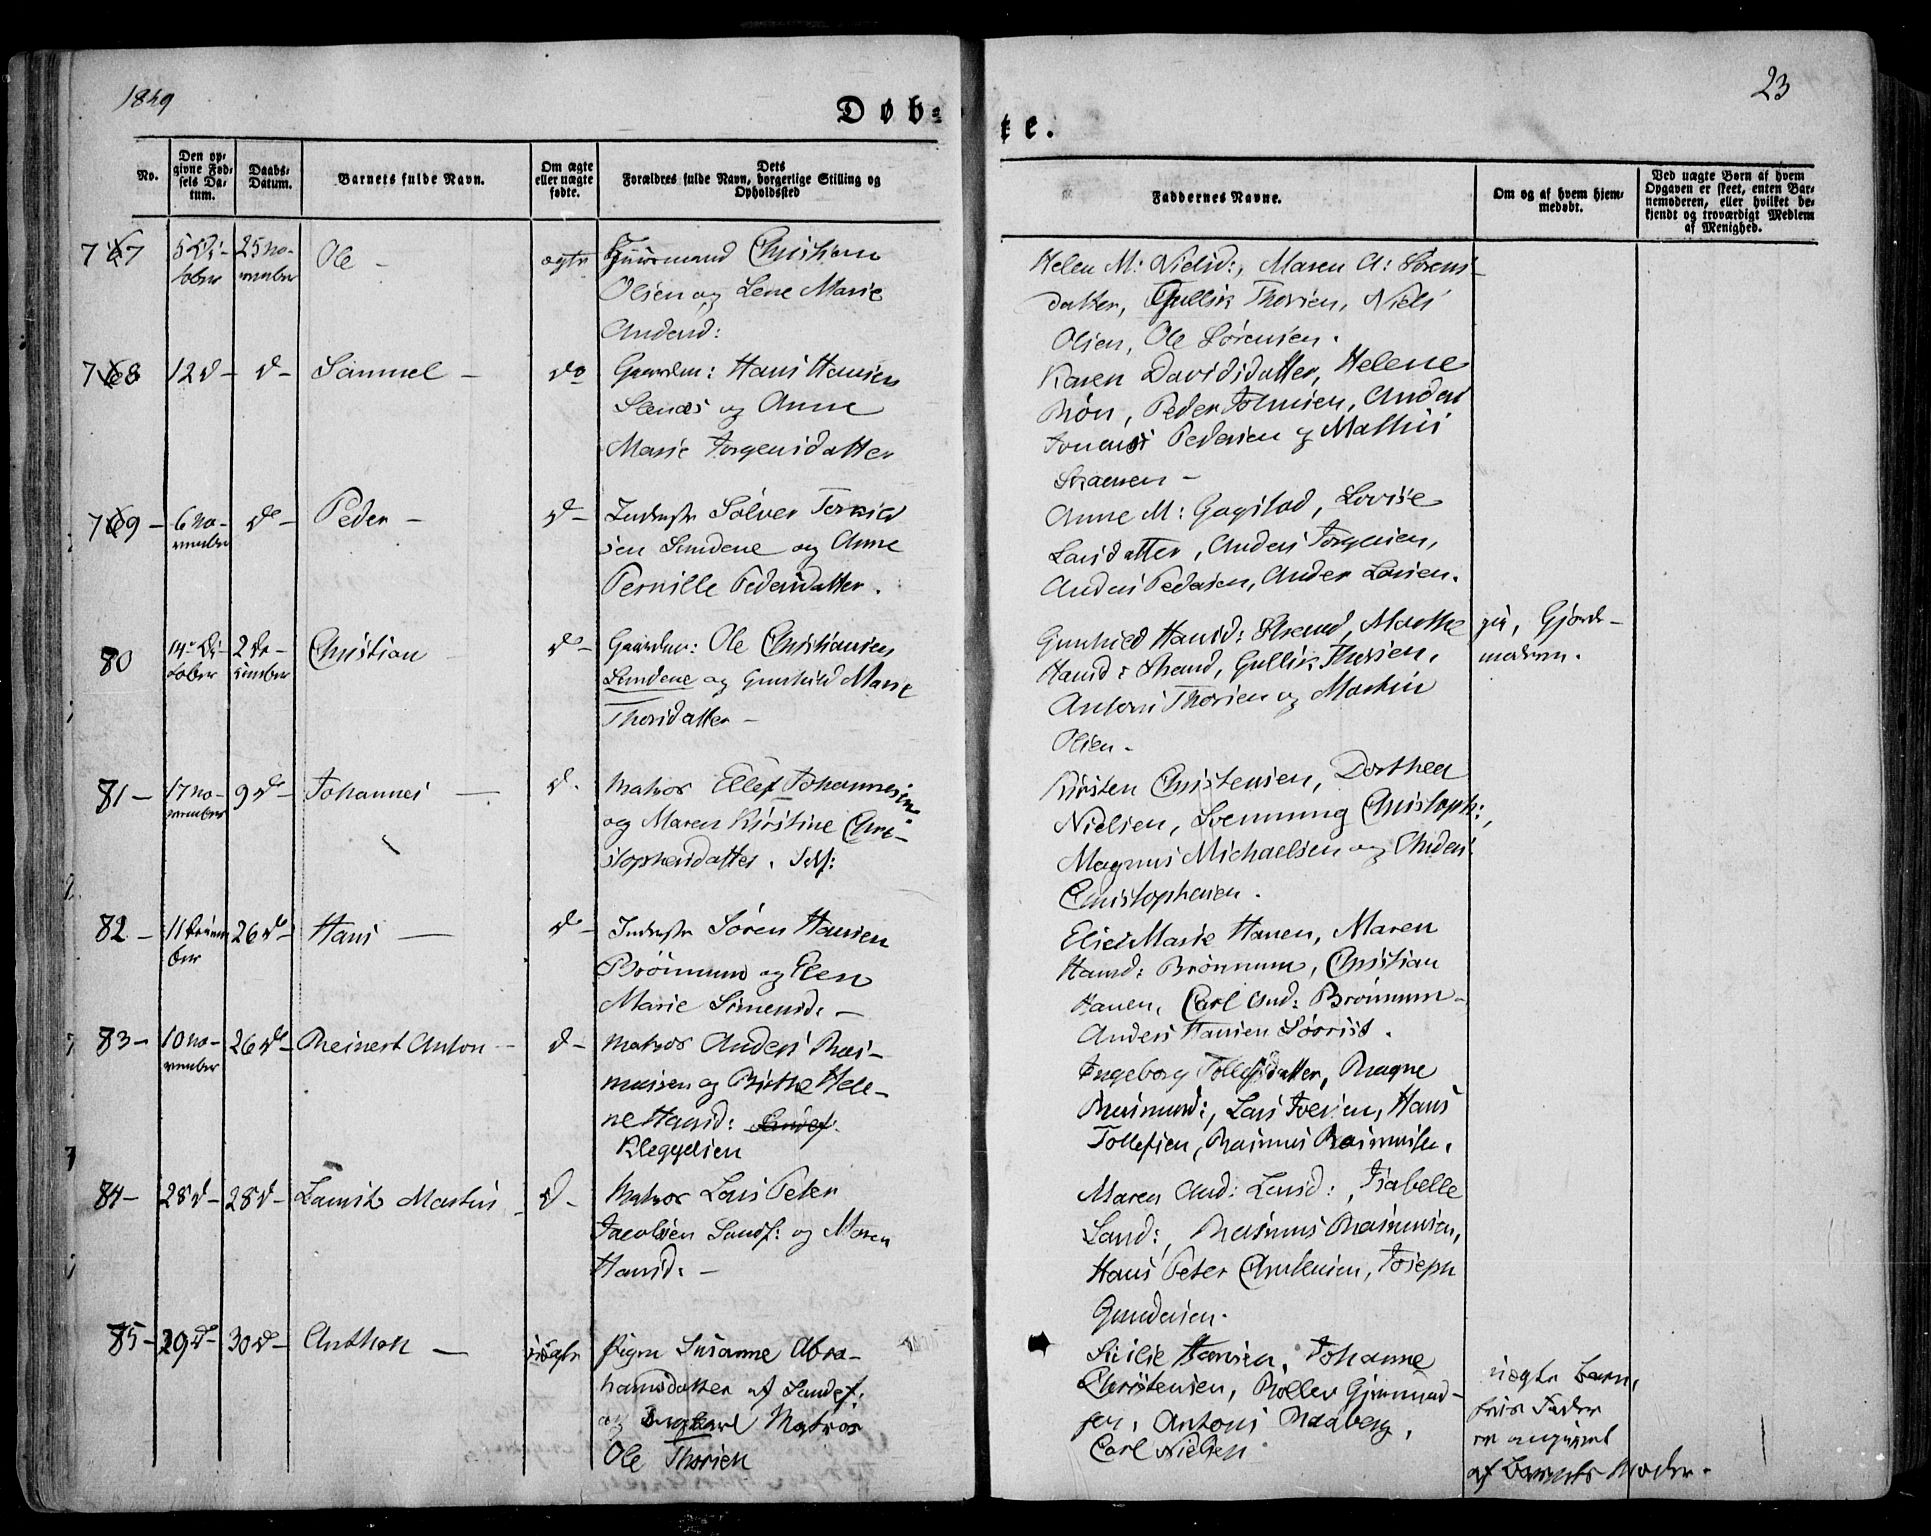 1849
23
Døb-
te.
No.
Den op-
givne Fød-
sels Da-
tum.
Daabs-
Datum.
Barnets fulde Navn.
Om ægte
eller uægte
fødte.
Dets
Forældres fulde Navn, borgerlige Stilling og
Opholdssted
Faddernes Navne.
Om og af hvem hjem-
medøbt.
Ved uægte Børn af hvem
Opgaven er skeet, enten Bar-
nemoderen, eller hvilket be-
kjendt og troværdigt Medlem
af Menighed.
77
5 Oc-
tober
25 No-
vember
Ole -
ægte
Huusmand Christian
Olsen og Lene Marie
Andersd:
Helen M: Nielsd:, Maren A: Sørens-
datter, Gullik Thorsen, Niels
Olsen, Ole Sørensen.
78
12 d -
d -
Samuel -
do
Gaardm: Hans Hansen
og Anne
Marie Jørgensdatter
Karen Davidsdatter, Helene
Peder Johnsen, Anders
Pedersen og Mathis
79 -
6 No-
vember
do -
Peder -
d -
Inderste Sølver Terkild
sen Lindene og Anne
Pernille Pedersdatter.
Anne M: Gogstad, Lovise
Larsdatter, Anders Jørgensen,
Anders Pedersen, Anders Larsen.
80
14 Oc-
tober
2 De-
cember
Christian -
do -
Gaardm: Ole Christiansen
Lindene og Gunhild Marie
Thorsdatter -
Gunhild Hansd: Strand, Marthe
Hansd: Strand, Gullik Thorsen,
Anton Thorsen og Martin
Olsen -
ja, Gjorde-
moderen.
81 -
17 No-
vember
9 do -
Johannes -
d -
Matros Ellef Johannesen
og Maren Kirstine Chri-
stophersdatter. Sdf:
Kirsten Christensen, Dorthea
Nielsen, Svenning Christoph:,
Magnus Michaelsen og Anders
Christophersen.
82 -
26 do -
Hans -
do -
Inderste Søren Hansen
Brønnum og Elen
Marie Simensd: -
Elise Marie Hansen, Maren
Hansd: Brønnum, Christian
Hansen, Carl And: Brønnum -
Anders Hansen
83 -
10 No-
vember
26 do -
Reinert Anton -
d -
Matros Anders Ras-
mussen og Birthe Hele-
ne Hansd: Sandef.
Ingeborg Tollefsdatter, Ragne
Rasmusd:, Lars Iversen, Hans
Tollefsen, Rasmus Rasmussen.
84 -
28 d -
28 d -
Lauritz Martin -
d -
Matros Lars Peter
Jacobsen Sandf: og Maren
Hansd: -
Maren And: Larsd:, Isabelle
Rasmus Rasmussen,
Hans Peter Christensen, Joseph
Gundersen.
85 -
29 d -
30 d -
Anthon -
uægte
Pigen Susanne Abra-
hamsdatter af Sandef:
og Ungkarl Matros
Ole Thorsen
Sicilie Hansen, Johanne
Christensen,
Antoni Raaberg,
Carl Nielsen
uægte Barn,
hvis Fader
er angivet
af Barnets Moder.